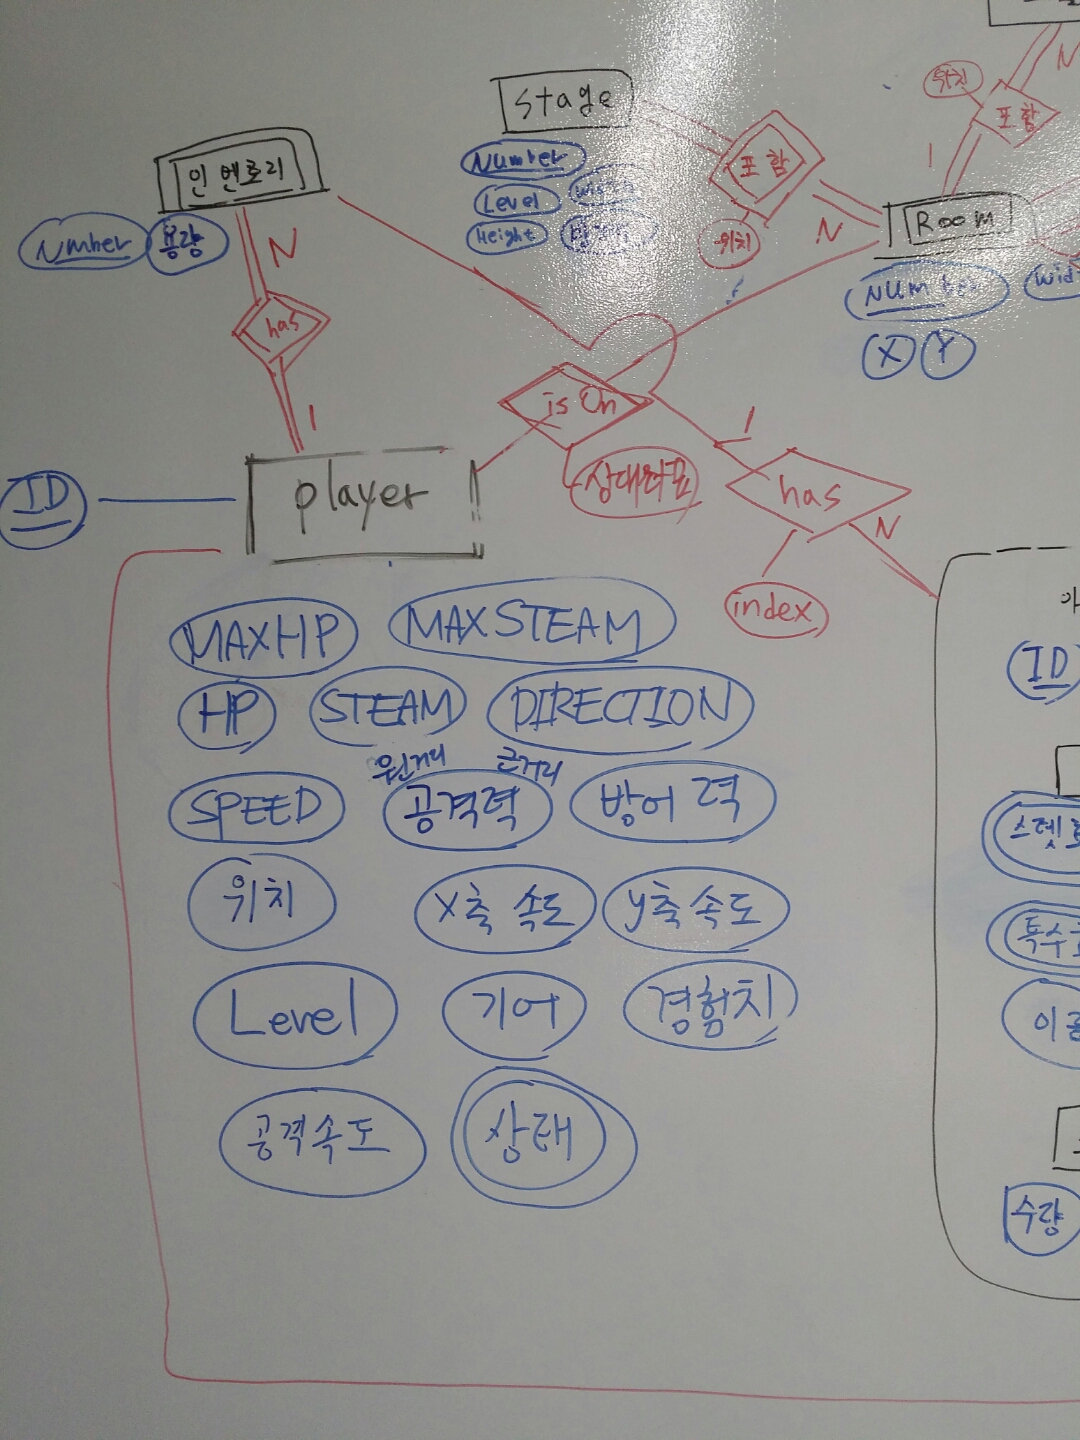 Stage
Number
Level
Height
포함
위치
N
위치
포함
N
1
Room
Number
X Y
인벤로리
Nmber 용량
N
has
1
is On
1
has
N
index
ID
player
MAXHP MAXSTEAM
HP STEAM DIRECTION
원거리 근거리
SPEED 공격력 방어력
위치 X축 속도 y축 속도
Level 기어 경험치
공격속도 상태
ID
수량